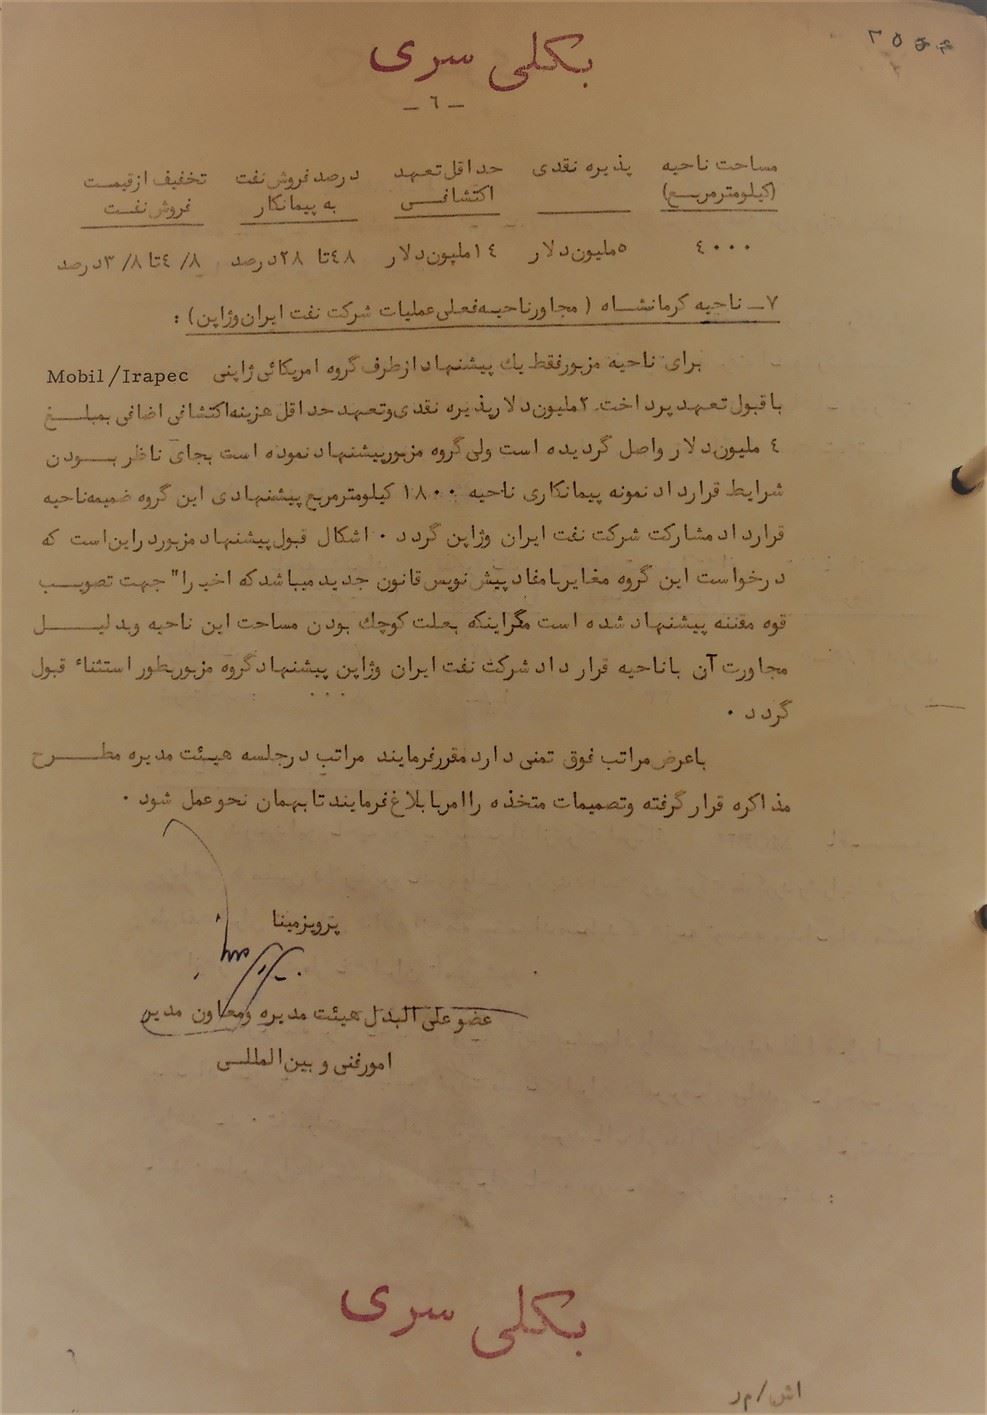 بکلی سری
- ٦ -
مساحت ناحیه پذیره نقدی حداقل تعهد درصد فروش نفت تخفیف از قیمت
(کیلومترمربع) اکتشافی به پیمانکار فروش نفت
٤٠٠٠ ٥ ملیون دلار ١٤ ملیون دلار ٤٨ تا ٢٨ درصد ٤/٨ تا ٣/٨ درصد
٧- ناحیه کرمانشاه ( مجاور ناحیه فعلی عملیات شرکت نفت ایران وژاپن ) :
برای ناحیه مزبور فقط یك پیشنهاد از طرف گروه امریکائی ژاپنی Mobil/Irapec
با قبول تعهد پرداخت ٢ ملیون دلار پذیره نقدی و تعهد حداقل هزینه اکتشافی اضافی بمبلغ
٤ ملیون دلار واصل گردیده است ولی گروه مزبور پیشنهاد نموده است بجای ناظر بودن
شرایط قرارداد نمونه پیمانکاری ناحیه ١٨٠٠ کیلومترمربع پیشنهادی این گروه ضمیمه ناحیه
قرارداد مشارکت شرکت نفت ایران وژاپن گردد . اشکال قبول پیشنهاد مزبور در این است که
درخواست این گروه مغایر با مفاد پیش نویس قانون جدید میباشد که اخیرا" جهت تصویب
قوه مقننه پیشنهاد شده است مگر اینکه بعلت کوچك بودن مساحت این ناحیه و بدلیل
مجاورت آن با ناحیه قرارداد شرکت نفت ایران وژاپن پیشنهاد گروه مزبور بطور استثناء قبول
گردد .
با عرض مراتب فوق تمنی دارد مقرر فرمایند مراتب در جلسه هیئت مدیره مطرح
مذاکره قرار گرفته و تصمیمات متخذه را امر با بلاغ فرمایند تا بهمان نحو عمل شود .
پرویز مینا
عضو علی البدل هیئت مدیره و معاون مدیر
امور فنی و بین المللی
بکلی سری
اش/م ر